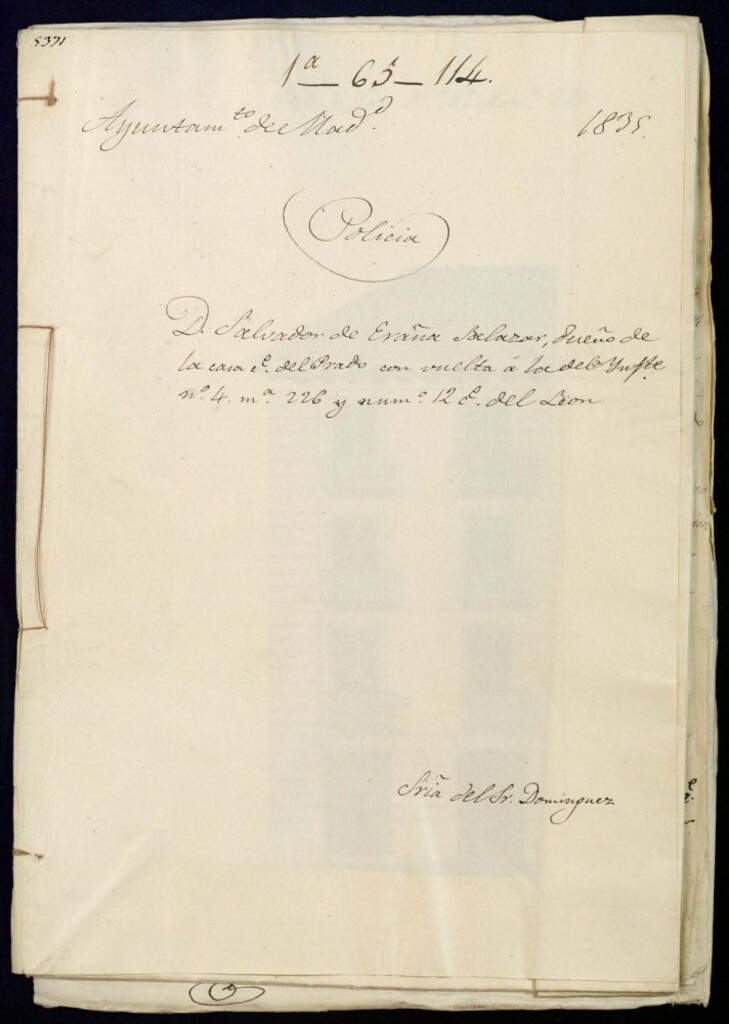 5371
1ª — 65 — 114.
Ayuntamᵗᵒ de Madᵈ. 1835.
Policia
D. Salvador de Eraña Belazar, dueño de
la casa cᵉ. del Prado con vuelta á la del
nº. 4. mª. 226 y numº. 12 cᵉ. del Leon
Sria del Sr. Dominguez